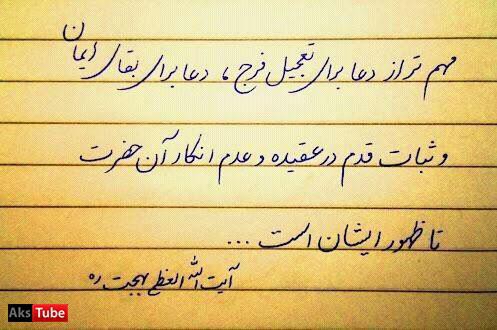 مهم تر از دعا برای تعجیل فرج، دعا برای بقای ایمان
و ثبات قدم در عقیده و عدم انکار آن حضرت
تا ظهور ایشان است ...
آیت الله العظمی بهجت ره
Aks Tube